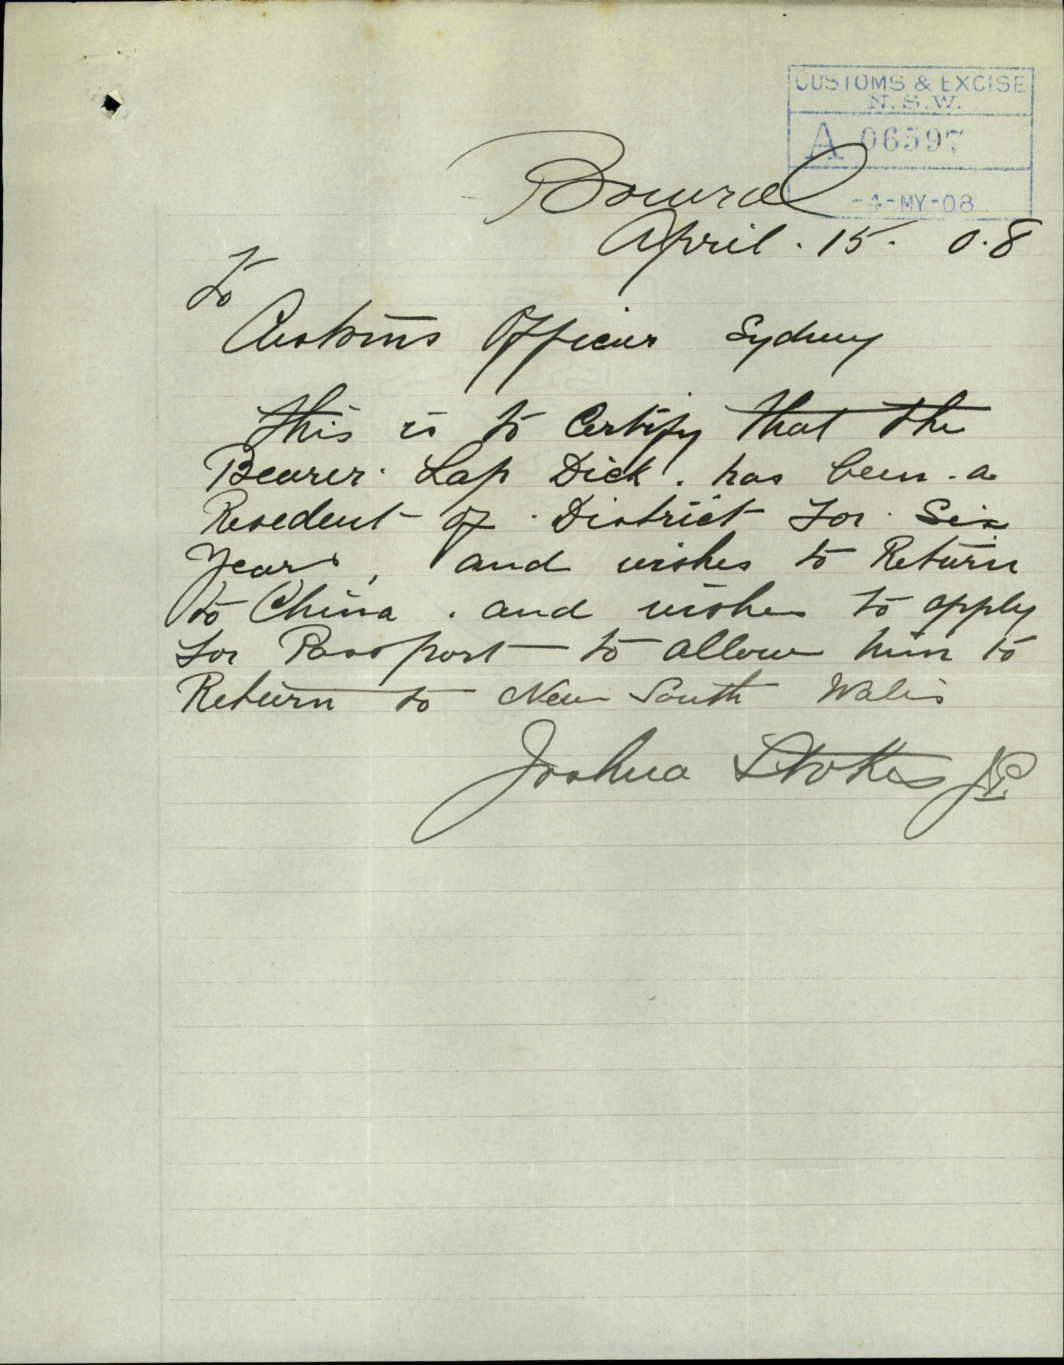 CUSTOMS & EXCISE
N.S.W.
A 06597
-4-MY-08
Bowral
April . 15 . 0.8
To
Customs Officer Sydney
This is to Certify that the
Bearer . Lap Dick . has been . a
Resedent of . District for . Six
Years , and wishes to Return
to China . and wishes to apply
for Passport to allow him to
Return to New South Wales
Joshua Stokes JP